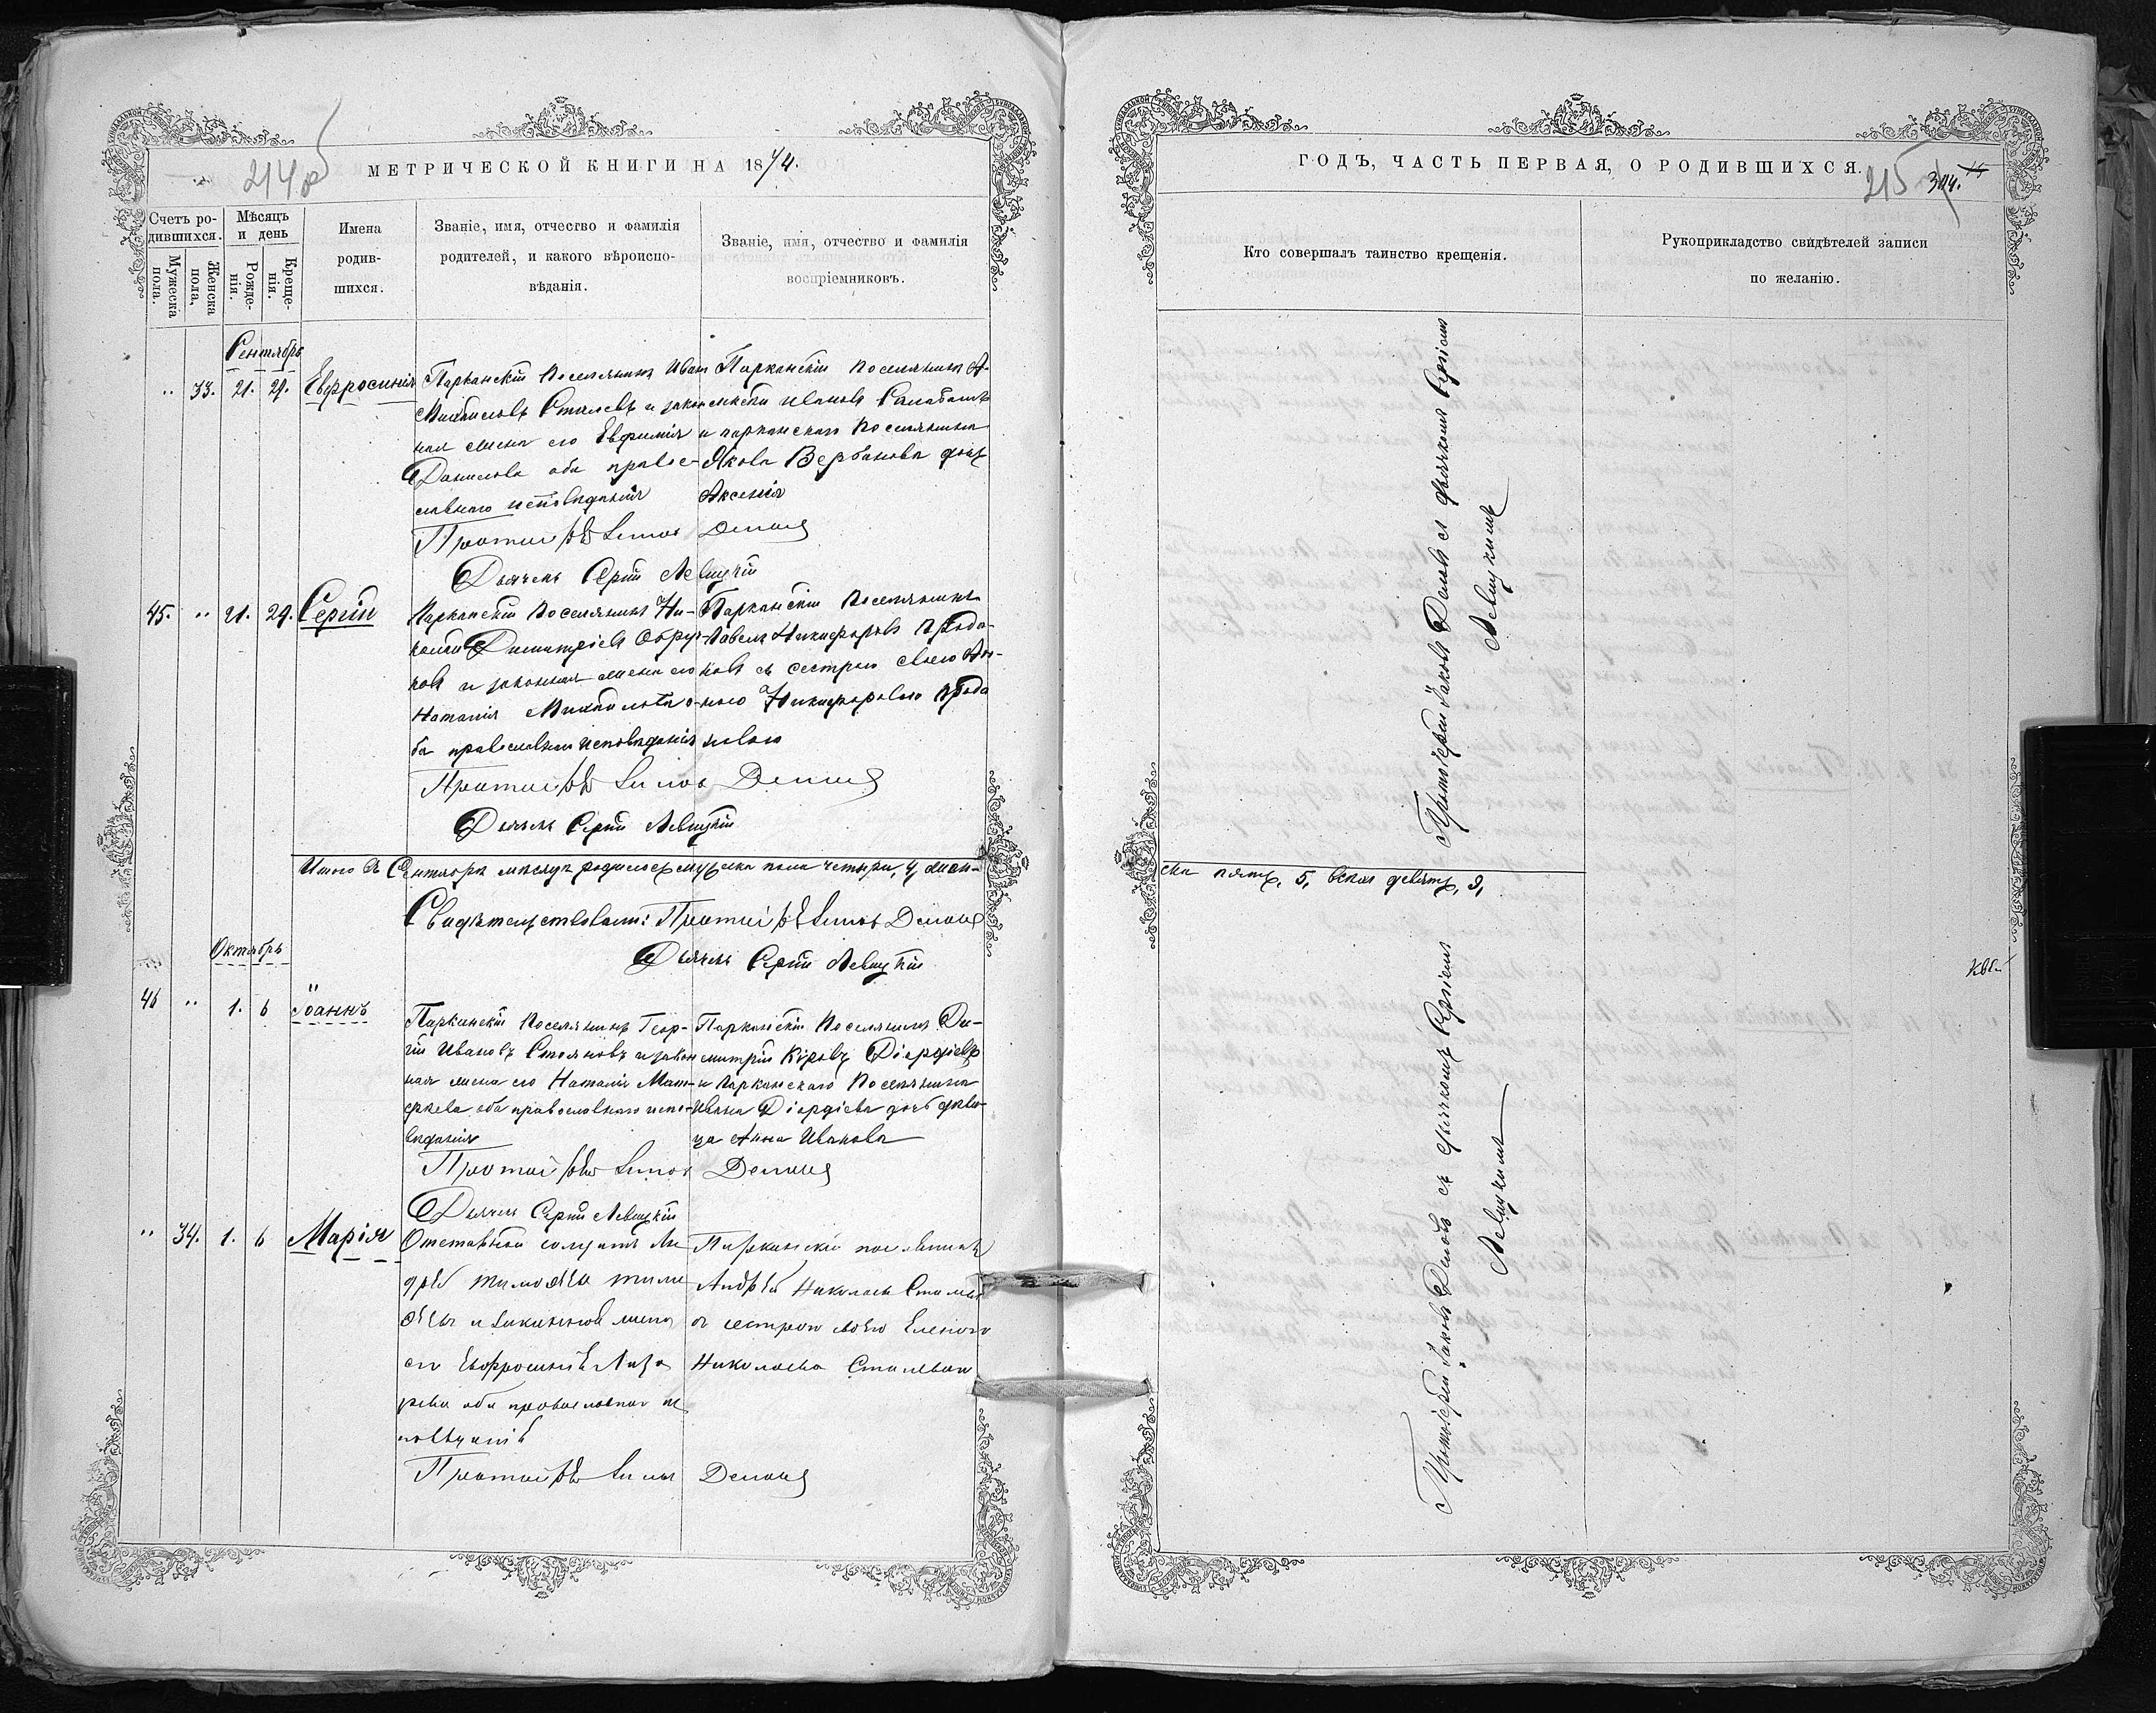 214 об
МЕТРИЧЕСКОЙ КНИГИ НА 1874.
Счетъ ро-
дившихся.
Мужеска
пола.
Женска
пола.
Мѣсяцъ
и день
Рожде-
нія.
Креще-
нія.
Имена
родив-
шихся.
Званіе, имя, отчество и фамилія
родителей, и какого вѣроиспо-
вѣданія.
Званіе, имя, отчество и фамилія
воспріемниковъ.
Сентябрь
„ 33. 21. 29. Евфросинія
Парканскій Поселянинъ Иван
Михаиловъ Сталевъ и закон
ная жена его Евфимія
Данилова оба право-
славнаго исповѣданія
Парканскій поселянинъ А-
лексѣй Ивановъ
и парканскаго Поселянина
Якова Вербанова дочь
Аксенія
Дьячекъ Сергій Левицкій
45. „ 21. 29. Сергій
Парканскій Поселянинъ Ни-
колай Димитріевъ Обруч-
ковъ и законная жена его
Наталія Михайлова о-
ба православнаго исповѣданія
Парканскій Поселянинъ
Павелъ Никифоровъ Прода-
новъ съ сестрою своею Ан-
ною Никифоровою Прода
новою
Дьячекъ Сергій Левицкій
Итого въ Сентябрѣ мѣсяцѣ родилось мужеска пола четыри, 4, жен-
Свидѣтельствовали:
Дьячекъ Сергій Левицкій
Октябрь
46 „ 1. 6 Іоаннъ
Парканскій Поселянинъ Геор-
гій Ивановъ Стояновъ и закон
ная жена его Наталія Мат-
ѳеева оба православнаго испо-
вѣданія
Парканскій Поселянинъ Ди-
митрій Кировъ Діордіевъ
и Парканскаго Поселянина
Ивана Діордіева дочь дѣви-
ца Анна Иванова
Дьячекъ Сергій Левицкій
„ 34. 1. 6 Марія
Отставной солдатъ Ан
дрей Тимоѳеевъ
и законная жена
его Евфросинія Лаза
рева оба православнаго ис
повѣданія
Парканскій поселянинъ
Андрей Николаевъ Сталевъ
съ сестрою своею Еленою
Николаева Сталевою
ГОДЪ, ЧАСТЬ ПЕРВАЯ, О РОДИВШИХСЯ.
215
304.
Кто совершалъ таинство крещенія.
Рукоприкладство свидѣтелей записи
по желанію.
Протоіерей Іаковъ съ дьячкомъ Сергіемъ
Левицкимъ
ска пять, 5, всехъ девять, 9,
Протоіерей Іаковъ съ дьячкомъ Сергіемъ
Левицкимъ